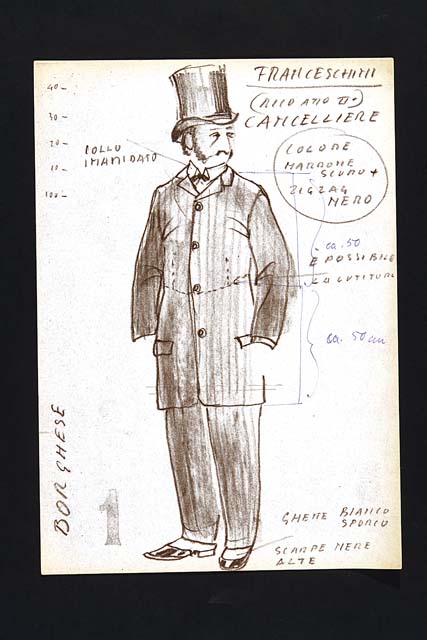 FRANCESCHINI
CANCELLIERE
40-
30-
20-
10-
100-
COLLO
INAMIDATO
COLORE
MARRONE
SCURO +
ZIGZAG
NERO
ca. 50
E POSSIBILE
LA CUCITURA
ca. 50 cm
BORGHESE
1
GHETTE BIANCO
SPORCO
SCARPE NERE
ALTE